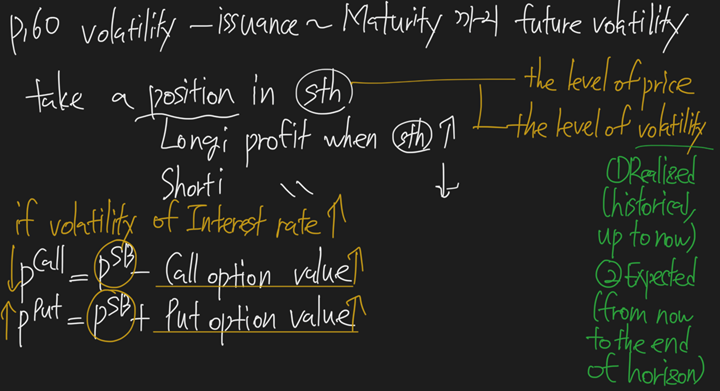 p.60 volatility — issuance ~ Maturity 까지 future volatility
take a position in sth
the level of price
the level of volatility
Long: profit when sth ↑
Short: 〃 ↓
① Realized
(historical,
up to now)
② Expected
(from now
to the end
of horizon)
if volatility of Interest rate ↑
↓ p^Call = p^SB - Call option value ↑
↑ p^Put = p^SB + Put option value ↑